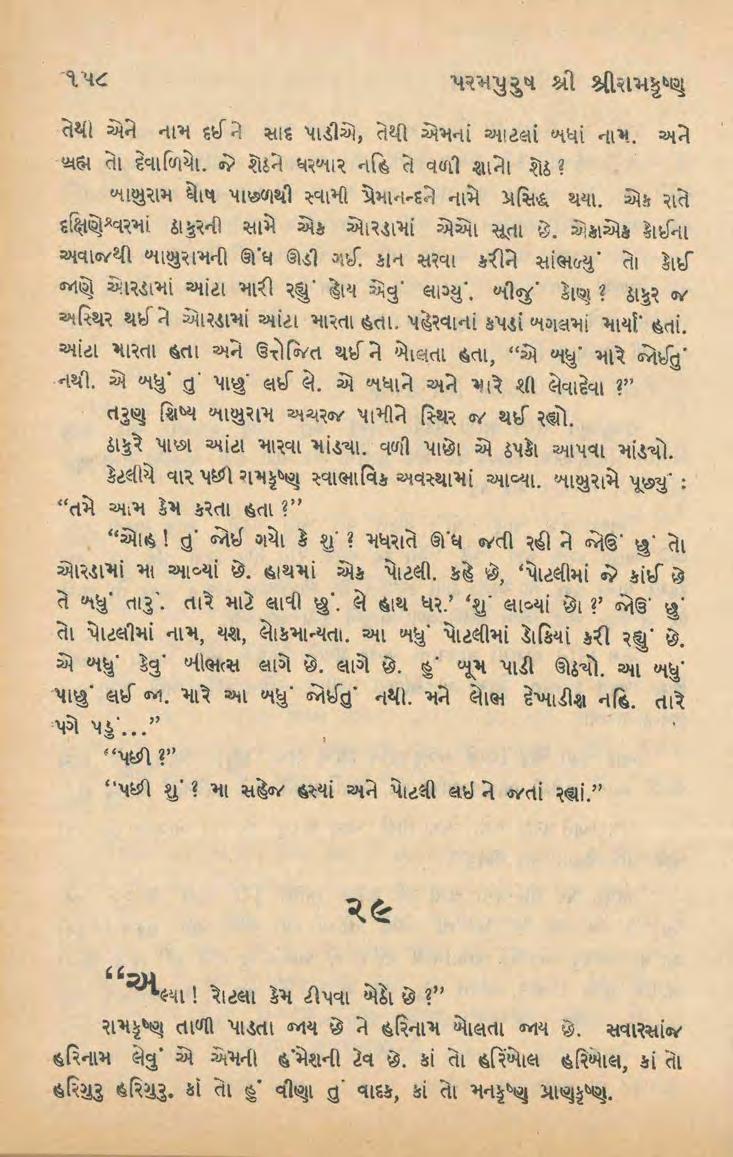 ૧૫૮ પરમપુરુષ શ્રી શ્રીરામકૃષ્ણ
તેથી એને નામ દઈ ને સાદ પાડીએ, તેથી એમનાં આટલાં બધાં નામ. અને
બ્રહ્મ તો દેવાળિયો. જે શેઠને ઘરબાર નહિ તે વળી શાનો શેઠ ?
બાબુરામ ઘોષ પાછળથી સ્વામી પ્રેમાનન્દને નામે પ્રસિદ્ધ થયા. એક રાતે
દક્ષિણેશ્વરમાં ઠાકુરની સામે એક ઓરડામાં એઓ સૂતા છે. એકાએક કોઈના
અવાજથી બાબુરામની ઊંઘ ઊડી ગઈ. કાન સરવા કરીને સાંભળ્યું તો કોઈ
જાણે ઓરડામાં આંટા મારી રહ્યું હોય એવું લાગ્યું. બીજું કોણ ? ઠાકુર જ
અસ્થિર થઈ ને ઓરડામાં આંટા મારતા હતા. પહેરવાનાં કપડાં બગલમાં માર્યાં હતાં.
આંટા મારતા હતા અને ઉત્તેજિત થઈ ને બોલતા હતા, “એ બધું મારે જોઈતું
નથી. એ બધું તું પાછું લઈ લે. એ બધાને અને મારે શી લેવાદેવા ?”
તરુણ શિષ્ય બાબુરામ અચરજ પામીને સ્થિર જ થઈ રહ્યો.
ઠાકુરે પાછા આંટા મારવા માંડ્યા. વળી પાછો એ ઠપકો આપવા માંડ્યો.
કેટલીયે વાર પછી રામકૃષ્ણ સ્વાભાવિક અવસ્થામાં આવ્યા. બાબુરામે પૂછ્યું :
“તમે આમ કેમ કરતા હતા ?”
“ઓહ ! તું જોઈ ગયો કે શું ? મધરાતે ઊંઘ જતી રહી ને જોઉં છું તો
ઓરડામાં મા આવ્યાં છે. હાથમાં એક પોટલી. કહે છે, ‘પોટલીમાં જે કાંઈ છે
તે બધું તારું. તારે માટે લાવી છું. લે હાથ ધર.’ ‘શું લાવ્યાં છો ?’ જોઉં છું
તો પોટલીમાં નામ, યશ, લોકમાન્યતા. આ બધું પોટલીમાં ડોકિયાં કરી રહ્યું છે.
એ બધું કેવું બીભત્સ લાગે છે. લાગે છે. હું બૂમ પાડી ઊઠ્યો. આ બધું
પાછું લઈ જા. મારે આ બધું જોઈતું નથી. મને લોભ દેખાડીશ નહિ. તારે
પગે પડું...”
“પછી ?”
“પછી શું ? મા સહેજ હસ્યાં અને પોટલી લઈ ને જતાં રહ્યાં.”
૨૯
“અલ્યા ! રોટલા કેમ ટીપવા બેઠો છે ?”
રામકૃષ્ણ તાળી પાડતા જાય છે ને હરિનામ બોલતા જાય છે. સવારસાંજ
હરિનામ લેવું એ એમની હંમેશની ટેવ છે. કાં તો હરિબોલ હરિબોલ, કાં તો
હરિગુરુ હરિગુરુ. કાં તો હું વીણા તું વાદક, કાં તો મનકૃષ્ણ પ્રાણકૃષ્ણ.